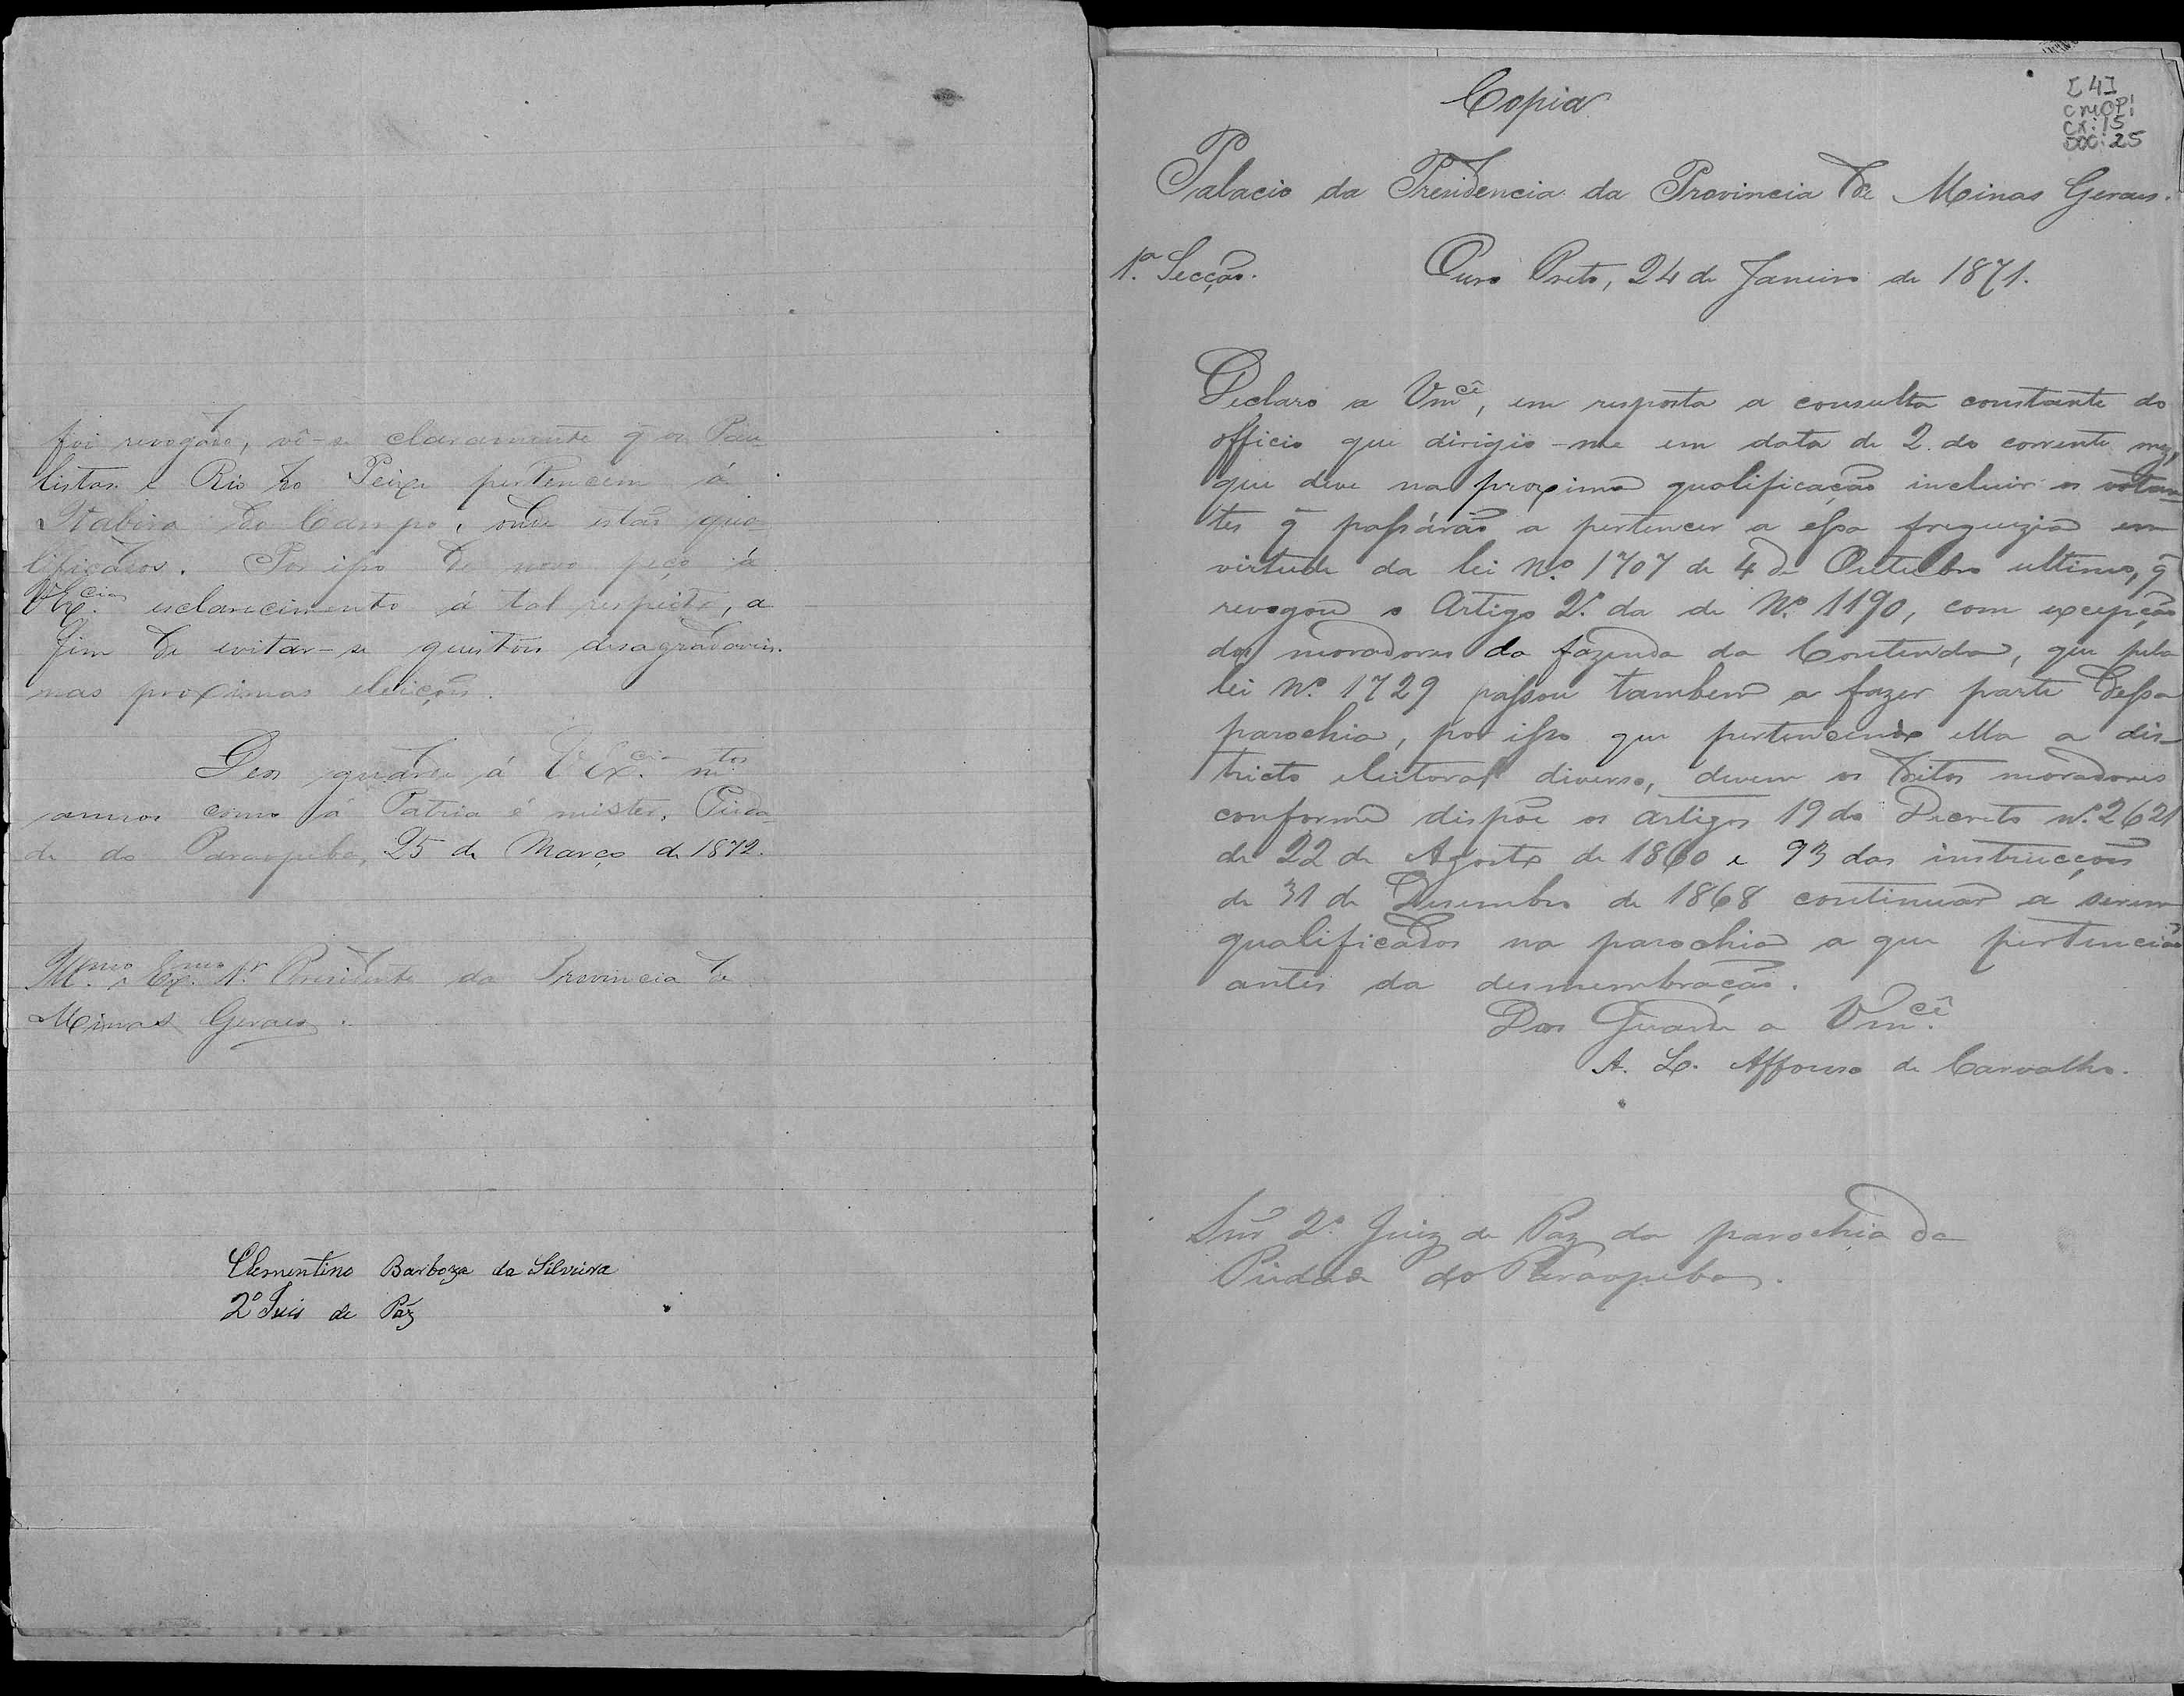 foi revogado, vê-se claramente q̃ os Pau-
listas e Rio do Peixe pertencem á
Itabira do Campo, onde estão qua-
lificados. Por isso de novo peço á
V Ex.cia esclarecimento á tal respeito, a
fim de evitar-se questões desagradaveis
nas proximas eleições.
Deos guarde á V Ex.cia m.tos
annos como á Patria é mister. Pieda-
de do Paraopeba, 25 de Março de 1872.
Ill.mo e Ex.mo Sr. Presidente da Provincia de
Minas Geraes.
Clementino Barboza da Silveira
2º Juis de Páz
[4]
CMOP
CX: 15
DOC: 25
Copia
Palacio da Presidencia da Provincia de Minas Geraes.
1.ª Secção. Ouro Preto, 24 de Janeiro de 1871.
Declaro a Vm.cê, em resposta a consulta constante do
officio que dirigio-me em data de 2 do corrente mez,
que deve na proxima qualificação incluir os votan-
tes q̃ passárão a pertencer a essa freguezia em
virtude da lei Nº 1707 de 4 de Outubro ultimo, q̃
revogou o Artigo 2º da de Nº 1190, com excepção
dos moradores da fazenda da Contenda, que pela
lei Nº 1729 passou tambem a fazer parte dessa
parochia, por isso que pertencendo ella a dis-
tricto eleitoral diverso, devem os ditos moradores
conforme dispõe os artigos 19 do Decreto nº 2621
de 22 de Agosto de 1860 e 93 das instrucções
de 31 de Desembro de 1868 continuar a serem
qualificados na parochia a que pertencião
antes da desmembração.
Deos Guarde a Vm.cê
A. L. Affonso de Carvalho.
Snr 2º Juiz de Paz da parochia da
Piedade do Paraopeba.